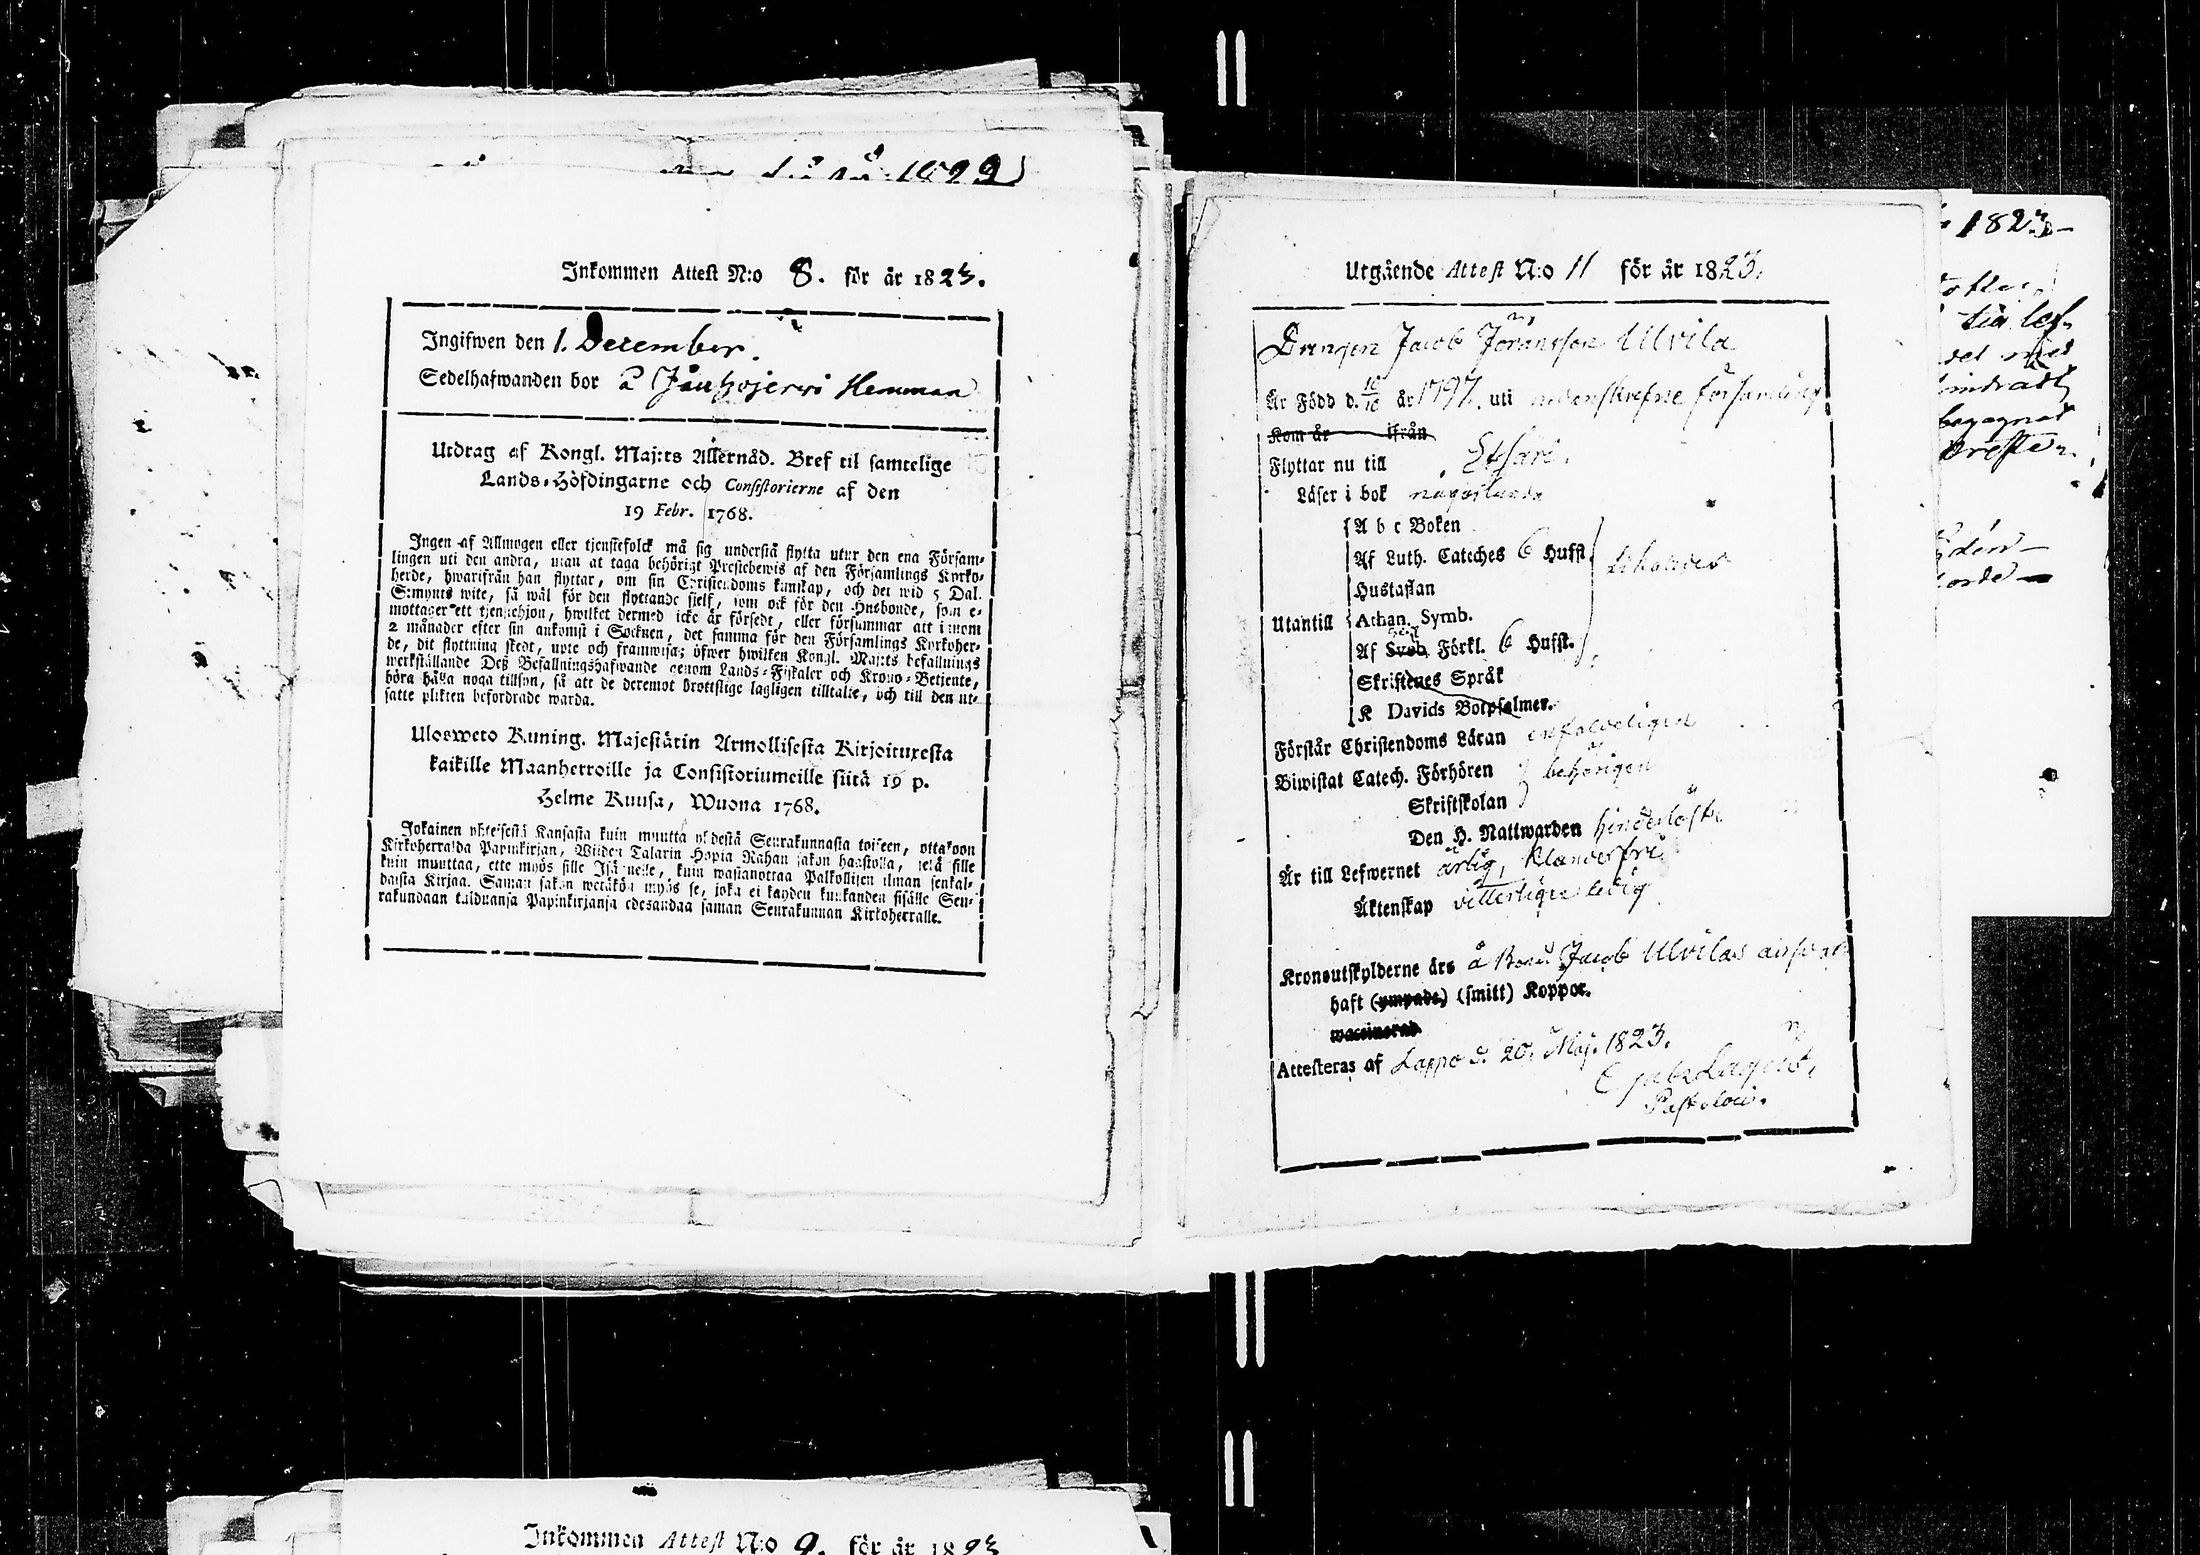 1822
Inkommen Attest N:o 8. för år 1823.
Ingifwen den 1. December.
Sedelhafwanden bor å Hemman
Utdrag af Kongl. Maj:ts Allernåd. Bref til samtelige
Lands-Höfdingarne och Consistorierne af den
19 Febr. 1768.
Ingen af Allmogen eller tjenstefolck må sig understå flytta utur den ena Försam-
lingen uti den andra, utan at taga behörigt Prestebewis af den Församlings Kyrko-
herde, hwarifrån han flyttar, om sin Christendoms kunskap, och det wid 5 Dal.
S:mynts wite, så wäl för den flyttande sjelf, som ock för den Husbonde, som e-
mottager ett tjenstehjon, hwilket dermed icke är försedt, eller försummar att inom
2 månader efter sin ankomst i Socknen, det samma för den Församlings Kyrkoher-
de, dit flyttning skedt, upte och framwisa; öfwer hwilken Kongl. Maj:ts befallnings
werkställande Deß Befallningshafwande genom Lands-Fiskaler och Krono-Betjente,
böra hålla noga tillsyn, så att de deremot brottslige lagligen tilltalte, och till den ut-
satte plikten befordrade warda.
Ulosweto Kuning. Majestätin Armollisesta Kirjoituxesta
kaikille Maanherroille ja Consistoriumeille siitä 19 p.
Helme Kuusa, Wuona 1768.
Jokainen yhteisestä Kansasta kuin muutta yhdestä Seurakunnasta toiseen, ottakoon
Kirkoherralda Papinkirjan, Wiiden Talarin Hopia Rahan sakon haastolla, sekä sille
kuin muuttaa, ette myös sille Isännelle, kuin wastanottaa Palkollisen ilman senkal-
daista Kirjaa. Saman sakon wetäkön myös se, joka ei kahden kuukauden sisälle Seu-
rakundaan tulduansa Papinkirjansa edesandaa saman Seurakunnan Kirkoherralle.
Utgående Attest N:o 11 för år 1823.
Drängen Jacob Jöransson Ulvila
Är Född d. 10/10 år 1797. uti nedanskrefne församling
Kom år ifrån
Flyttar nu till Etsäri.
Läser i bok någorlunda
A b c Boken
Af Luth. Cateches 6 Hufst.
Hustaflan
Utantill Athan. Symb.
Af Sveb. Förkl. 6 Hufst.
Skriftenes Språk
K Davids Botpsalmer.
Förstår Christendoms Läran enfaldeligen
Biwistat Catech. Förhören behörigen
Skriftskolan
Den H. Nattwarden
Är till Lefwernet ärlig, klanderfri
Äktenskap vitterligen ledig
Kronoutskylderne äro å Jacob Ulvilas
haft (ympade) (smitt) Koppor.
waccinerad
Attesteras af Lappo d. 20. Maj. 1823.
1823
Inkommen Attest N:o 9. för år 1823